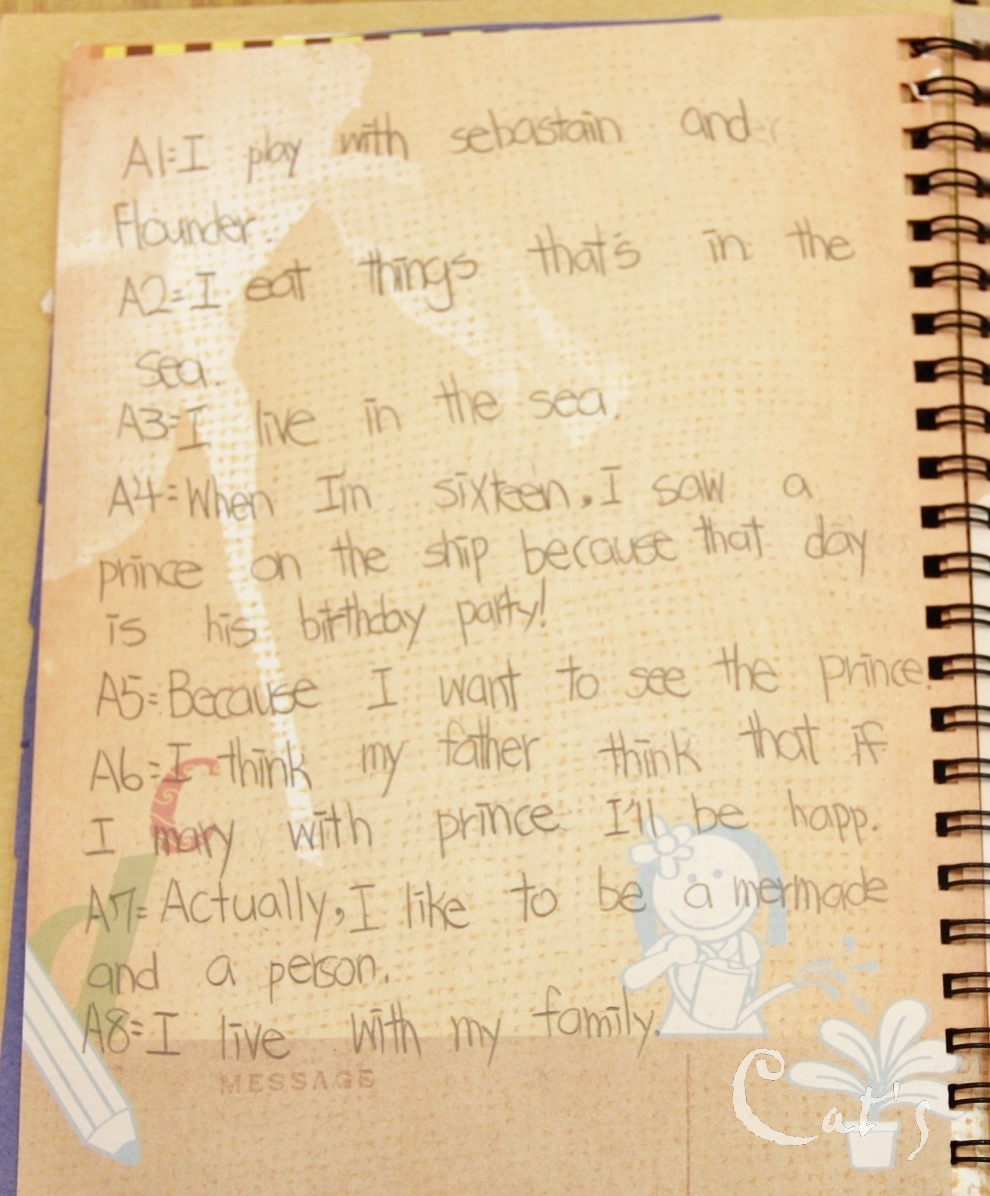 A1=I play with sebastain and
Flounder.
A2=I eat things that's in the
sea.
A3=I live in the sea.
A4=When I'm sixteen, I saw a
prince on the ship because that day
is his birthday party!
A5=Because I want to see the prince.
A6=I think my father think that if
I mary with prince I'll be happ.
A7=Actually, I like to be a mermade
and a person.
A8=I live with my family.
MESSAGE
Cat's